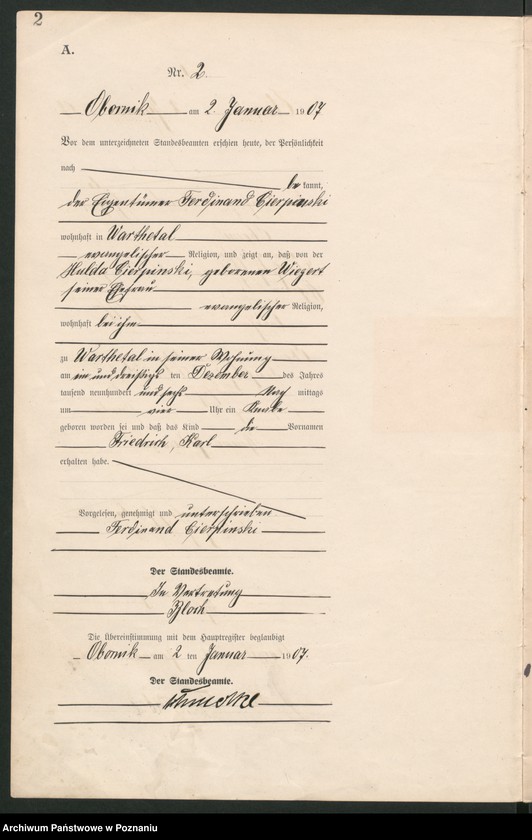 2
A.
Nr. 2.
Obornik am 2. Januar 1907
Vor dem unterzeichneten Standesbeamten erschien heute, der Persönlichkeit
nach
bekannt,
der Eigentümer Ferdinand Cierpinski
wohnhaft in Warthetal
evangelischer Religion, und zeigt an, daß von der
Hulda Cierpinski, geborenen
seiner Ehefrau
evangelischer Religion,
wohnhaft bei ihm
zu Warthetal in seiner Wohnung
am ein und dreißigsten Dezember des Jahres
tausend neunhundert und sechs Nachmittags
um vier Uhr ein Knabe
geboren worden sei und daß das Kind die Vornamen
Friedrich, Karl
erhalten habe.
Vorgelesen, genehmigt und unterschrieben
Ferdinand Cierpinski
Der Standesbeamte.
In Vertretung
Bloch
Die Übereinstimmung mit dem Hauptregister beglaubigt
Obornik am 2 ten Januar 1907.
Der Standesbeamte.
Archiwum Państwowe w Poznaniu